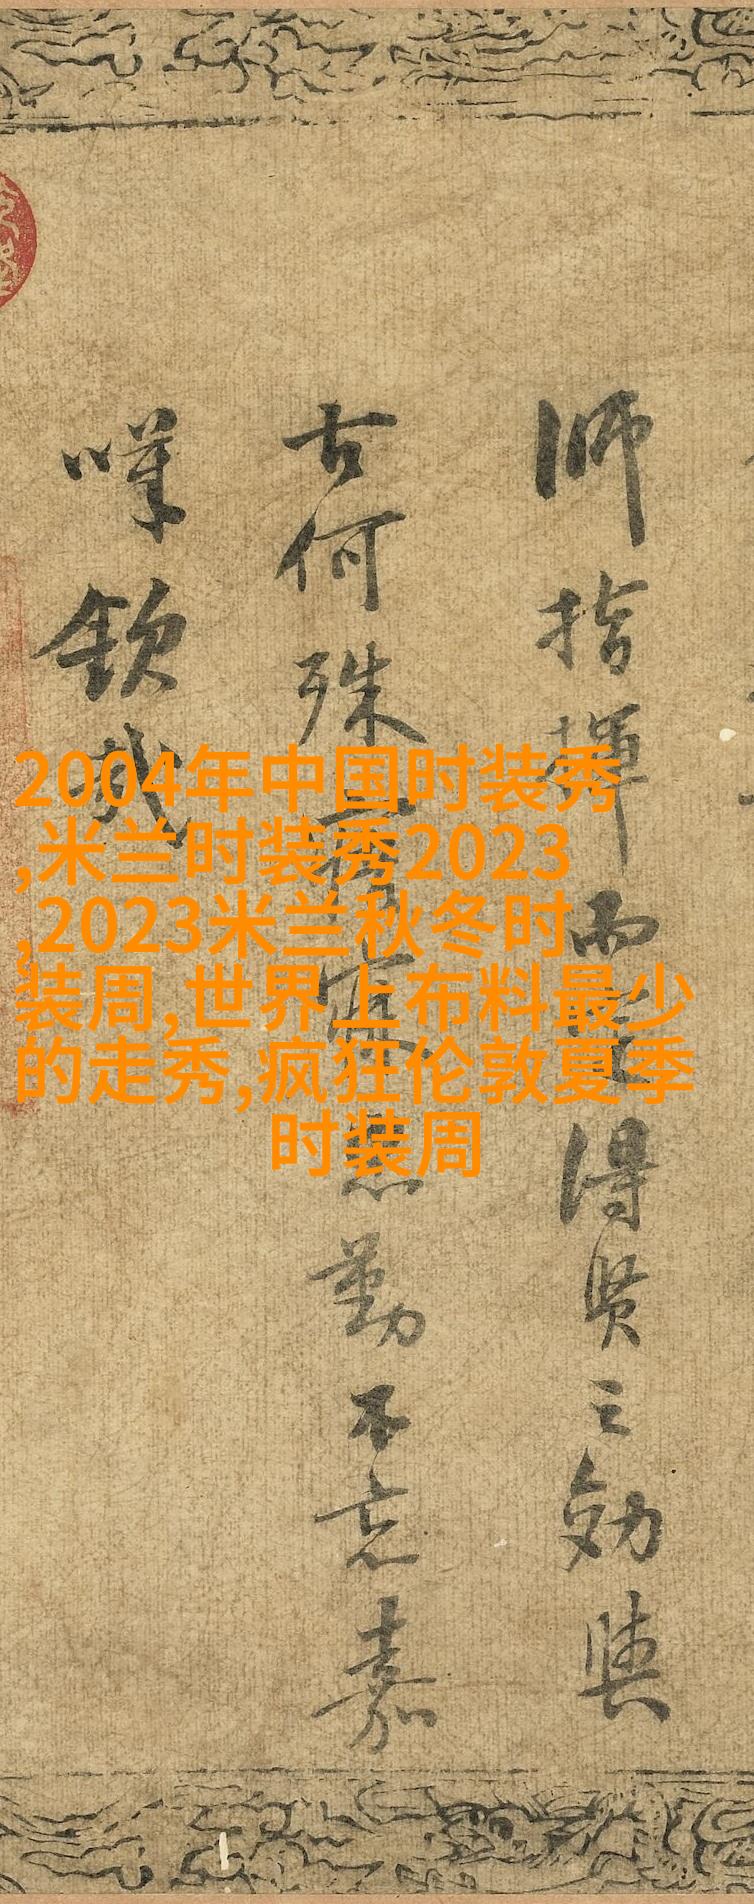 2004年中国时装秀
,米兰时装秀2023
,2023米兰秋冬时
装周,世界上布料最少
的走秀,疯狂伦敦夏季
时装周
師指揮而得賢之効與
古何殊勤不忘嘉
嘆欽哉